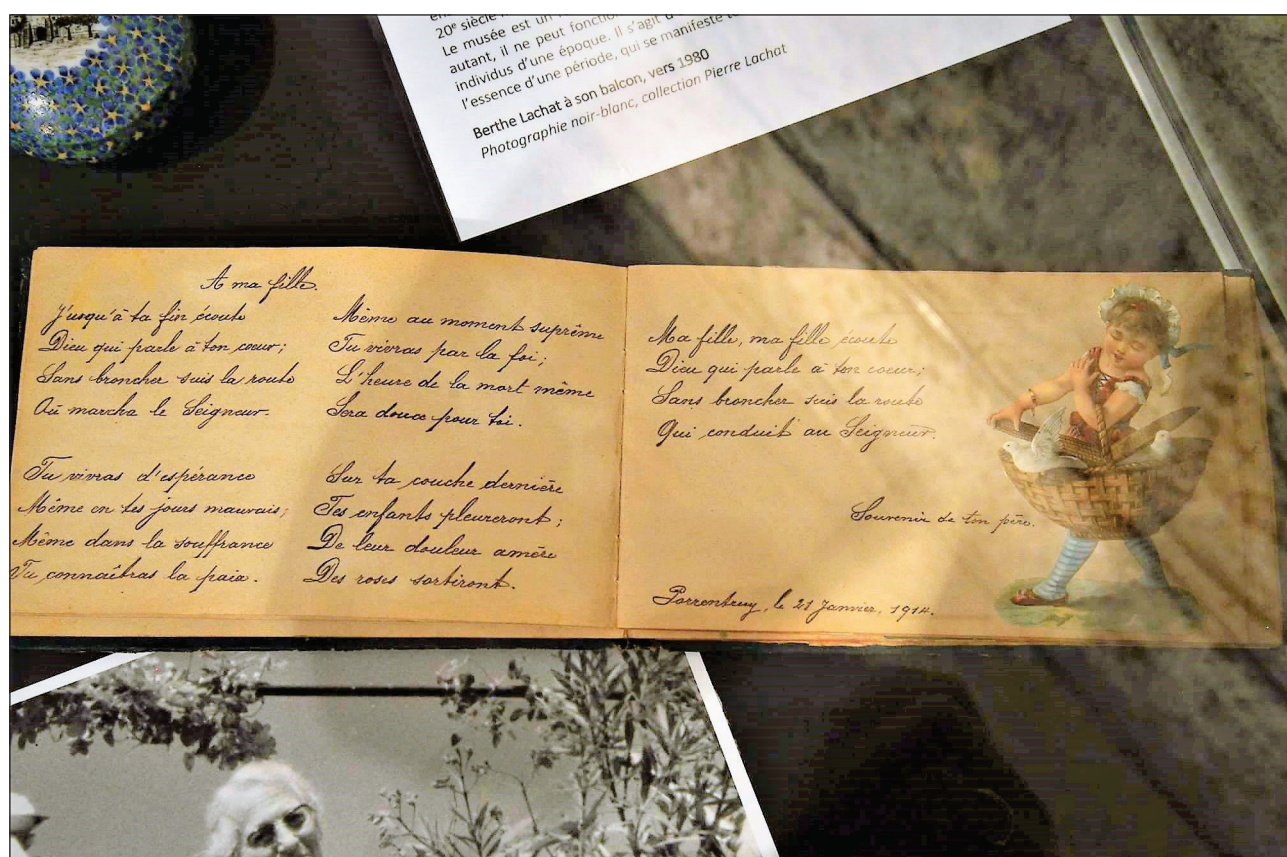 20e siècle
Le musée est un
autant, il ne peut
individus d'une époque. Il s'agit
l'essence d'une période, qui se manifeste
Berthe Lachat à son balcon, vers 1980
Photographie noir-blanc, collection Pierre Lachat
A ma fille.
Jusqu'à ta fin écoute
Dieu qui parle à ton coeur;
Sans broncher suis la route
Où marcha le Seigneur.
Tu vivras d'espérance
Même en tes jours mauvais;
Même dans la souffrance
Tu connaîtras la paix.
Même au moment suprême
Tu vivras par la foi;
L'heure de la mort même
Sera douce pour toi.
Sur ta couche dernière
Tes enfants pleureront;
De leur douleur amère
Des roses sortiront.
Ma fille, ma fille écoute
Dieu qui parle à ton coeur;
Sans broncher suis la route
Qui conduit au Seigneur.
Souvenir de ton père.
Porrentruy, le 21 Janvier, 1914.